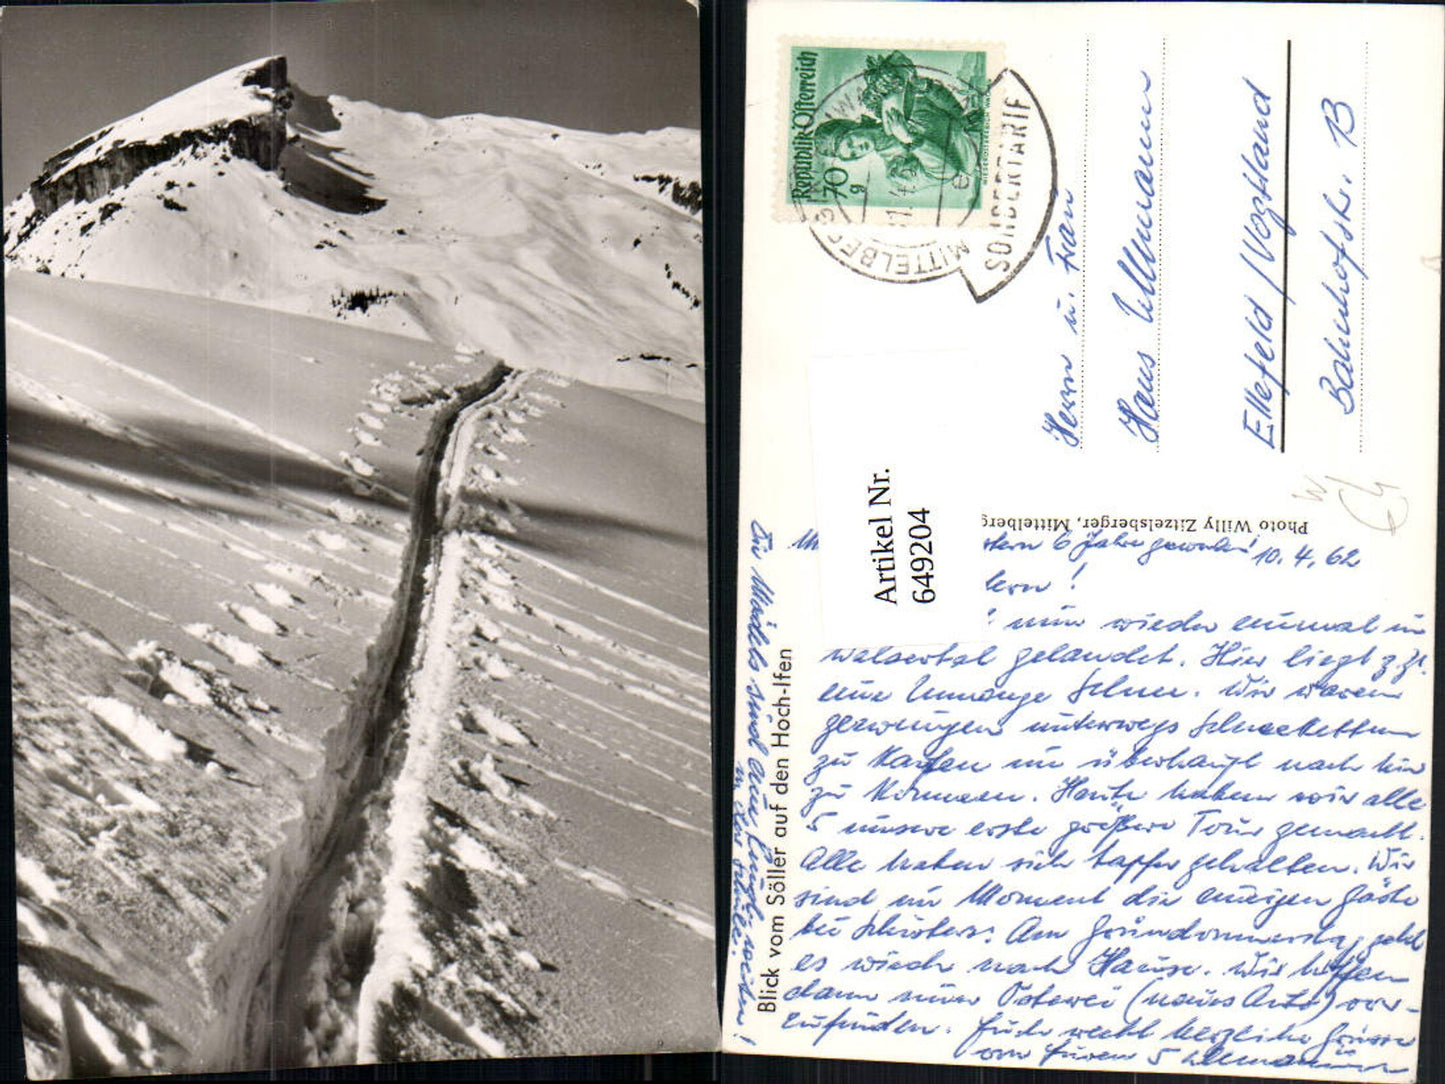 Republik Österreich
70 g
NIEDERÖSTERREICH
MITTELBERG
SONDERTARIF
Herrn u. Frau
Hans Ullmann
Ellefeld / Vogtland
Bahnhofstr. 13
Artikel Nr.
649204
Photo Willy Zitzelsberger, Mittelberg
6 Jahre geworden! 10. 4. 62
nun wieder einmal im
walsertal gelandet. Hier liegt z.Zt.
eine Unmenge Schnee. Wir waren
gezwungen unterwegs Schneeketten
zu kaufen um überhaupt nach hier
zu kommen. Heute haben wir alle
5 unsere erste größere Tour gemacht.
Alle haben sich tapfer gehalten. Wir
sind im Moment die einzigen Gäste
bei Schusters. Am Gründonnerstag geht
es wieder nach Hause. Wir hoffen
dann unser Osterei (neues Auto) vor-
zufinden. Euch recht herzliche Grüsse
von Euren 5 Ullmännern
Blick vom Söller auf den Hoch-Ifen
Die Mädels sind
in der Schule.